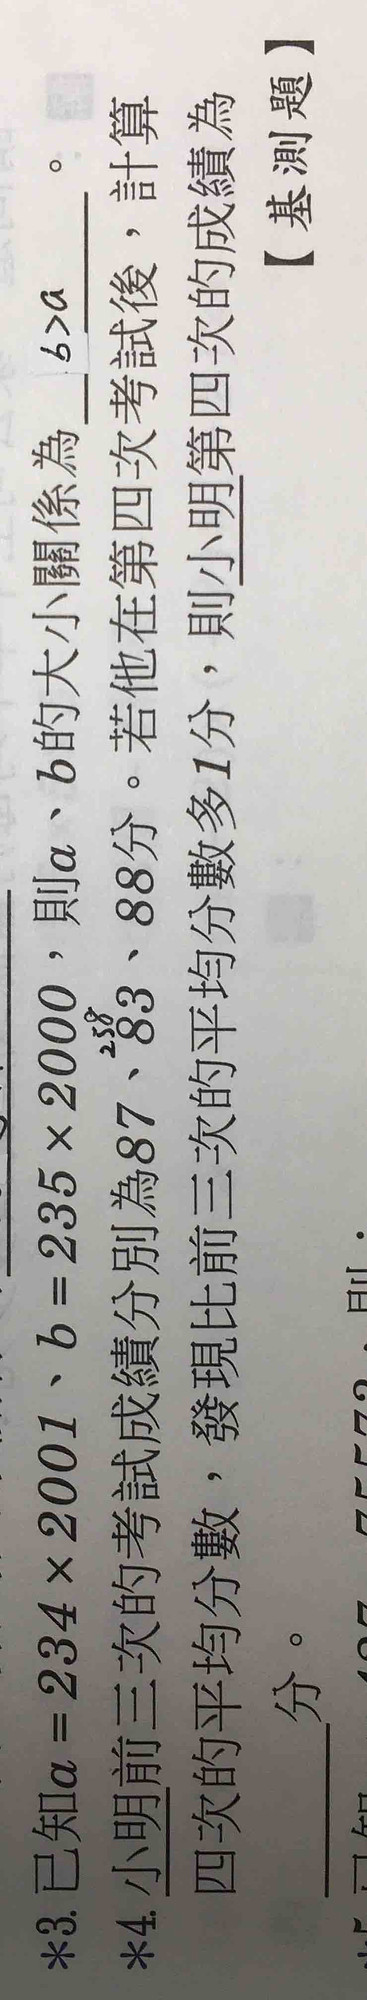 *3. 已知a=234×2001、b=235×2000，則a、b的大小關係為 b>a 。
*4. 小明前三次的考試成績分別為87、83、88分。若他在第四次考試後，計算
258
四次的平均分數，發現比前三次的平均分數多1分，則小明第四次的成績為
分。 【基測題】